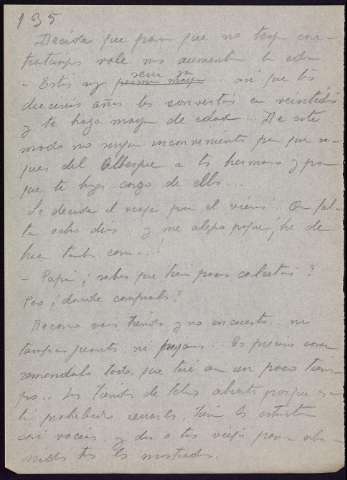 135
Decide que para que no tenga con-
tratiempos vale mas aumentar la edad
- Estás muy seria ya así que los
diecisiete años los convertiré en veintidós
y te hago mayor de edad... De este
modo no surgen inconvenientes para que se-
ques del Albergue a tus hermanos y para
que te hagas cargo de ellos...
Se decide el viaje para el viernes. Que fal-
ta ocho dias y me alegra porque, he de
hacer tantas cosas..!
- Papá ¿sabes que tiene pocos calcetines?
Pero ¿donde comprarlos?
Recorro varias tiendas y no encuentro ni
tampoco ni Es preciso
remendarlo todo, que tire aun un poco tiem-
po.. Las tiendas de telas abiertas porque es-
tá prohibido cerrarlas, tienen los estantes
casi vacios y dan a las viejas para
las